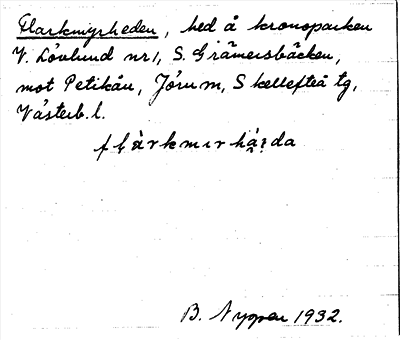 Flarkmyrheden, hed å kronoparken
V. Lövlund nr 1, S. Grämersbäcken,
mot Petikån, Jörum, Skellefteå tg,
Västerb. l.
B. Nygren 1932.